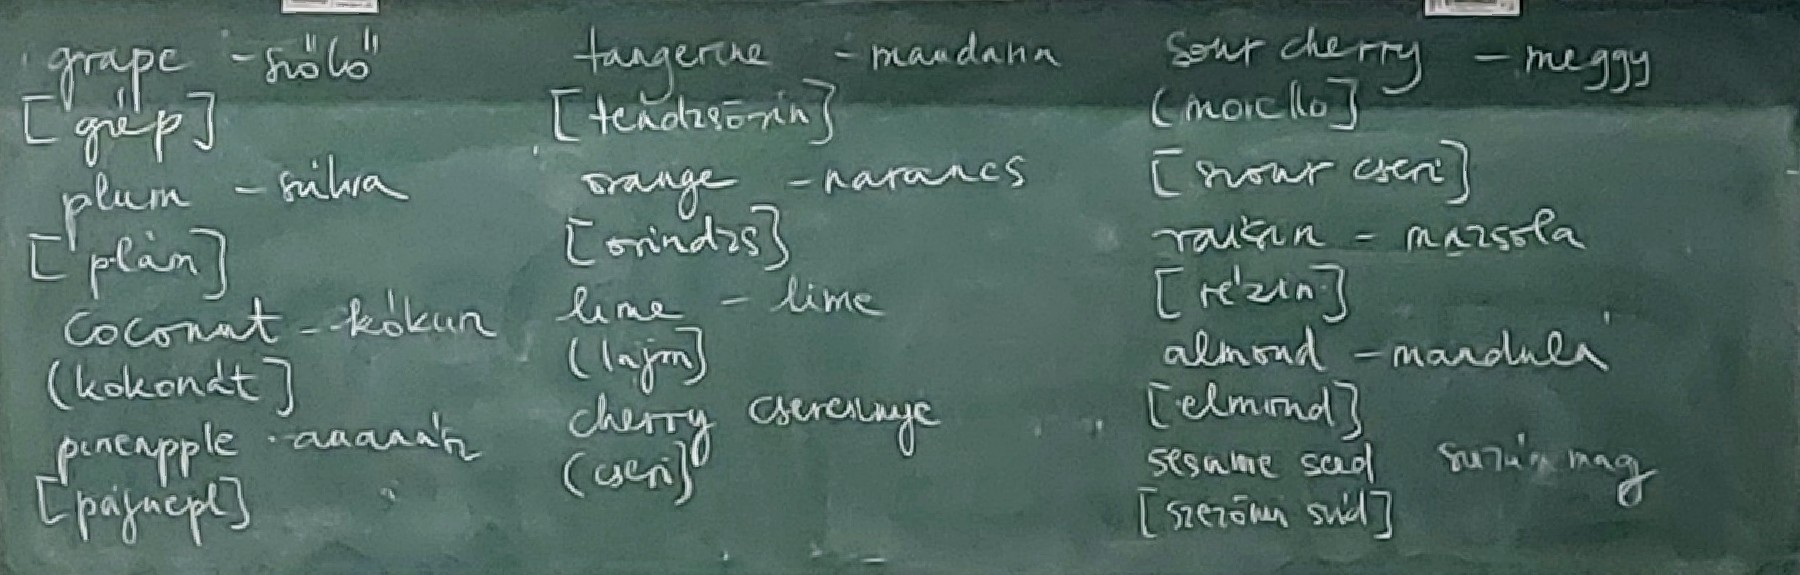 grape - szőlő
[grép]
plum - szilva
[plám]
coconut - kókusz
(kokonát]
pineapple - ananász
[pájnepl]
tangerine - mandarin
[tendzsörin]
orange - narancs
[orindzs]
lime - lime
(lajm]
cherry cseresznye
(cseri]
sour cherry - meggy
(morello]
[szour cseri]
raisin - mazsola
[rézin]
almond - mandula
[elmond]
sesame seed szezámmag
[szezömi szíd]